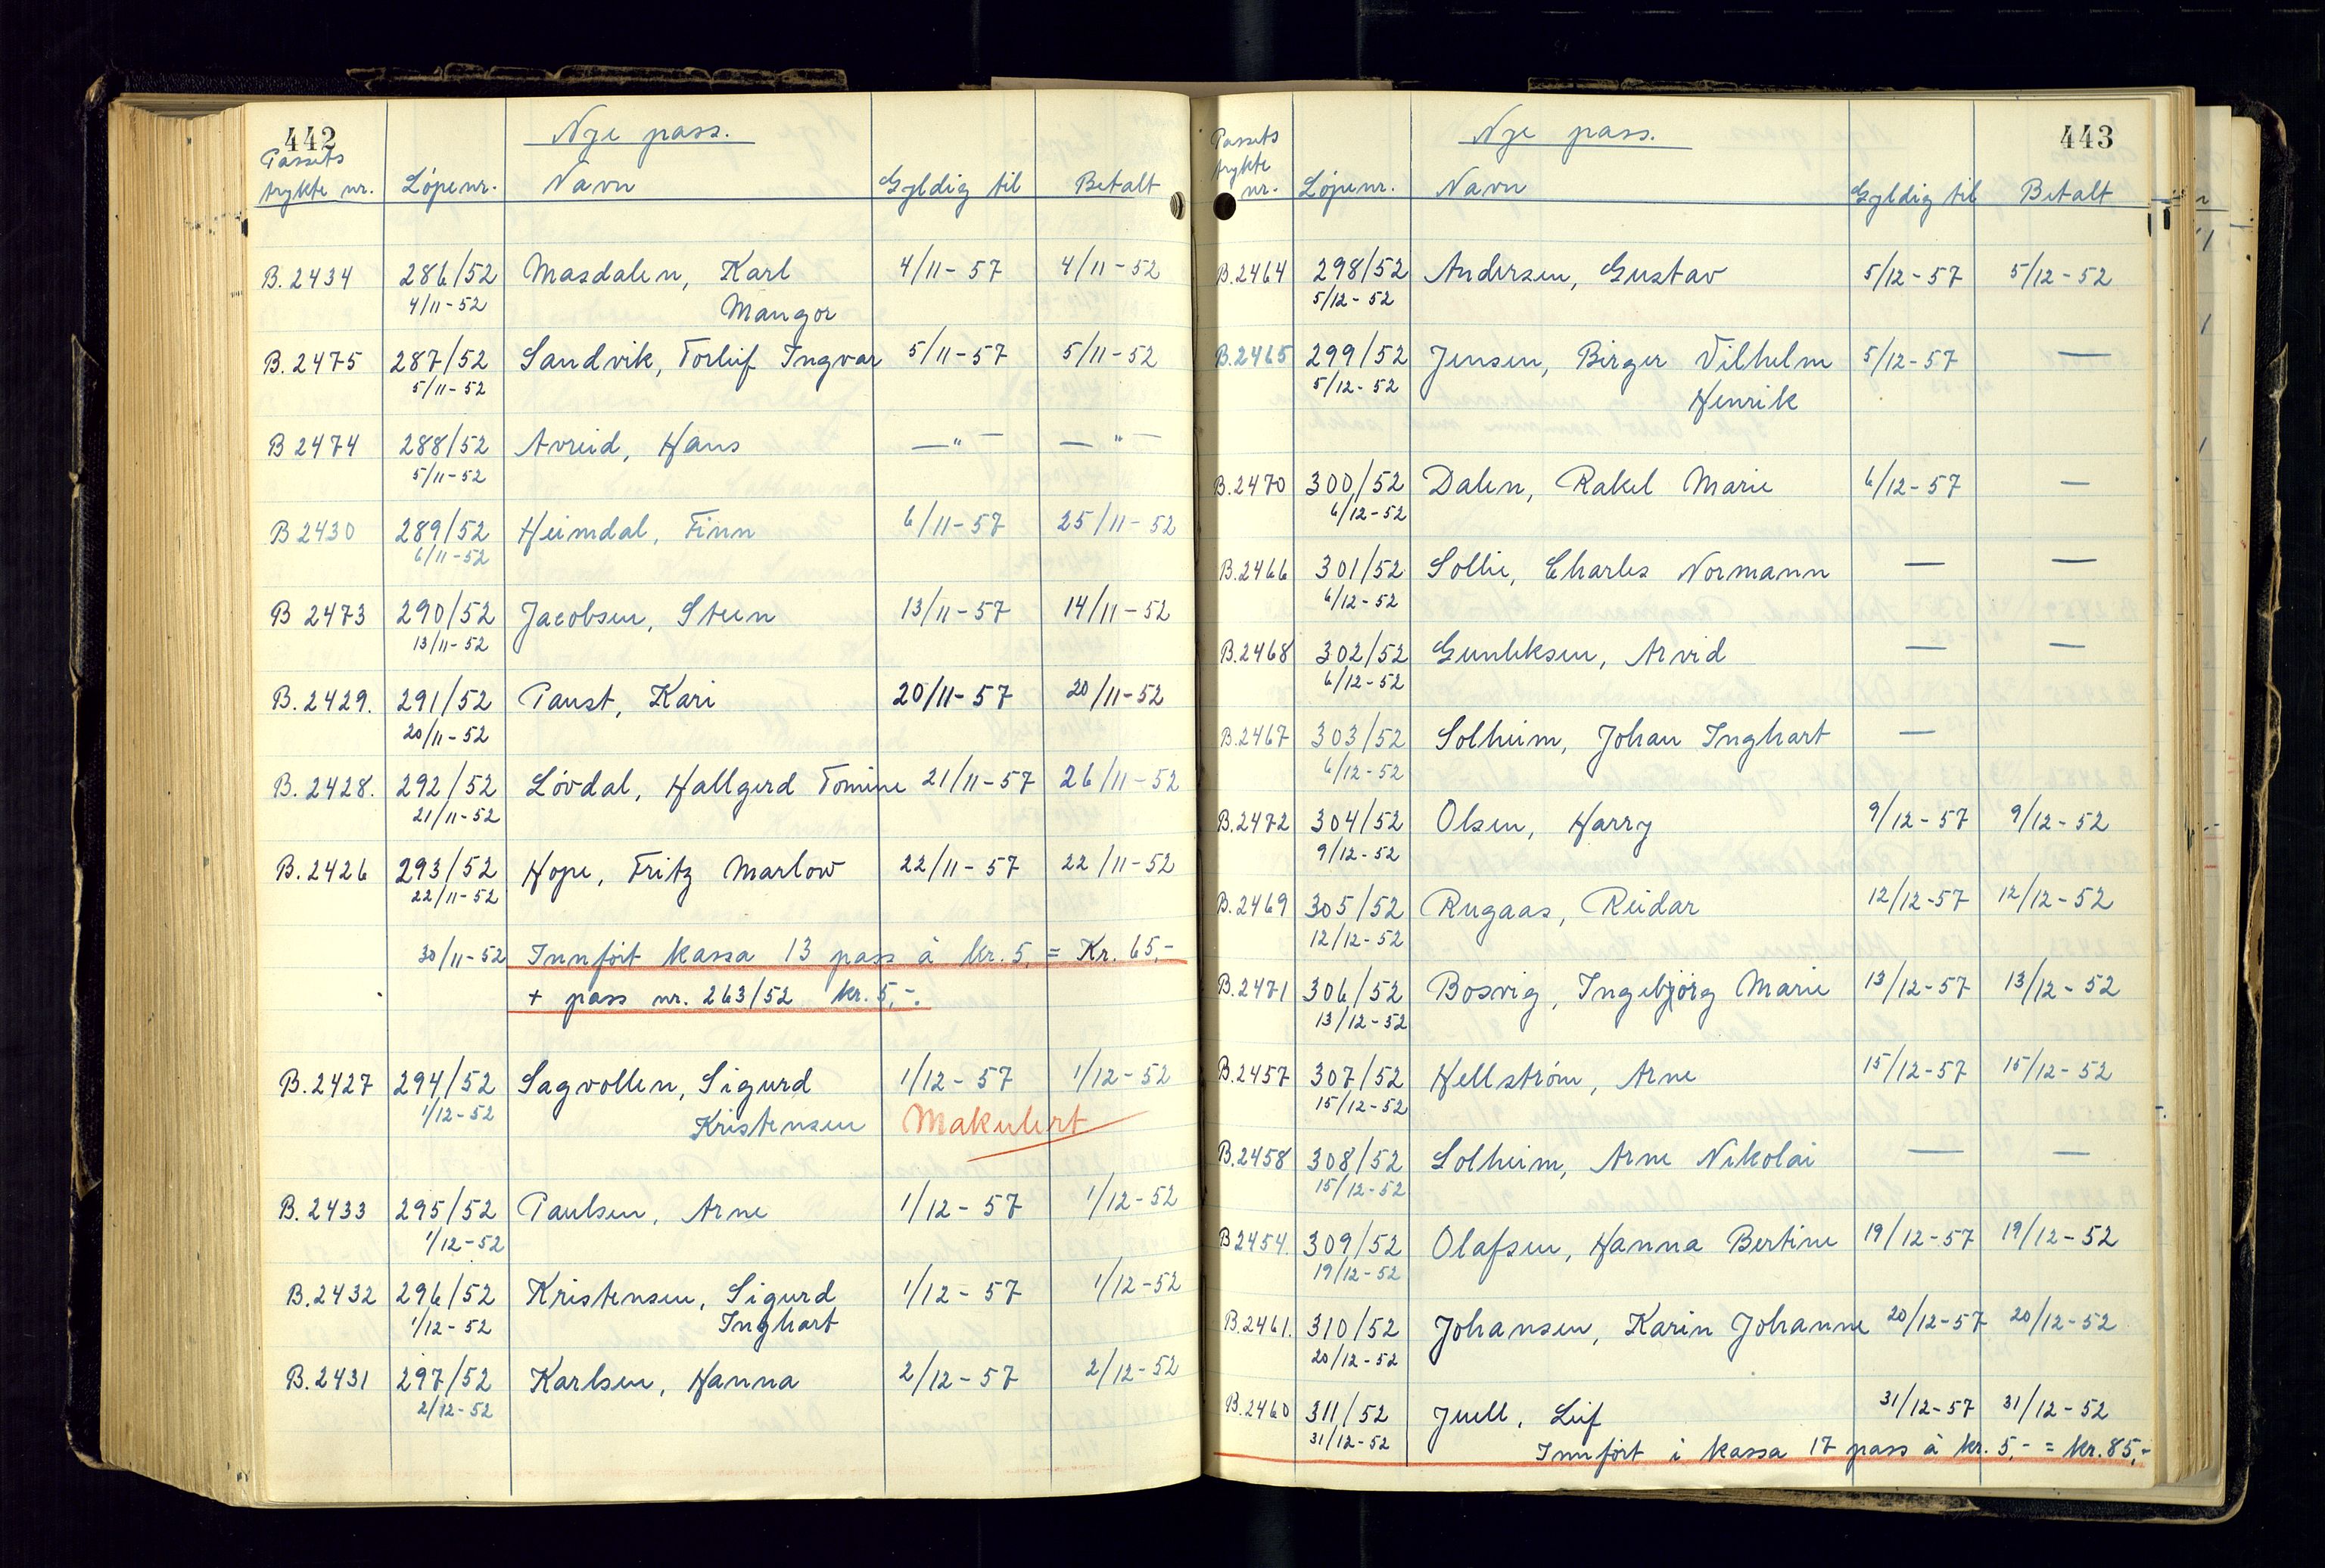 442
Nye pass.
Passets
trykte nr. Löpenr. Navn Gyldig til Betalt
B. 2434 286/52 Masdalen, Karl 4/11-57 4/11-52
4/11-52 Mangor
B. 2475 287/52 Sandvik, Torleif Ingvar 5/11-57 5/11-52
5/11-52
B 2474 288/52 Avreid, Hans —"— —"—
5/11-52
B 2430 289/52 Heimdal, Finn 6/11-57 25/11-52
6/11-52
B 2473 290/52 Jacobsen, Steen 13/11-57 14/11-52
13/11-52
B. 2429. 291/52 Paust, Kari 20/11-57 20/11-52
20/11-52
B. 2428. 292/52 Lövdal, Hallgerd Tomine 21/11-57 26/11-52
21/11-52
B. 2426 293/52 Hope, Fritz Marlow 22/11-57 22/11-52
22/11-52
30/11-52 Innført kassa 13 pass à kr. 5. = Kr. 65,-
+ pass nr. 263/52 kr. 5,-.
B. 2427 294/52 Sagvollen, Sigurd 1/12-57 1/12-52
1/12-52 Kristensen Makulert
B. 2433 295/52 Paulsen, Arne 1/12-57 1/12-52
1/12-52
B. 2432 296/52 Kristensen, Sigurd 1/12-57 1/12-52
1/12-52 Inghart
B. 2431 297/52 Karlsen, Hanna 2/12-57 2/12-52
2/12-52
443
Nye pass.
Passets
trykte
nr. Löpenr. Navn Gyldig til Betalt
B.2464 298/52 Andersen, Gustav 5/12-57 5/12-52
5/12-52
B.2465 299/52 Jensen, Birger Vilhelm 5/12-57 —
5/12-52 Henrik
B.2470 300/52 Dalen, Rakel Marie 6/12-57 —
6/12-52
B.2466 301/52 Sollie, Charles Normann — —
6/12-52
B.2468 302/52 Gunleksen, Arvid — —
6/12-52
B.2467 303/52 Solheim, Johan Inghart —
6/12-52
B.2472 304/52 Olsen, Harry 9/12-57 9/12-52
9/12-52
B.2469 305/52 Rugaas, Reidar 12/12-57 12/12-52
12/12-52
B.2471 306/52 Bosvig, Ingebjörg Marie 13/12-57 13/12-52
13/12-52
B.2457 307/52 Hellström, Arne 15/12-57 15/12-52
15/12-52
B.2458 308/52 Solheim, Arne Nikolai — —
15/12-52
B 2454. 309/52 Olafsen, Hanna Bertine 19/12-57 19/12-52
19/12-52
B.2461. 310/52 Johansen, Karin Johanne 20/12-57 20/12-52
20/12-52
B.2460 311/52 Juell, Leif 31/12-57 31/12-52
31/12-52 Innført i kassa 17 pass à kr. 5,- = kr. 85,-